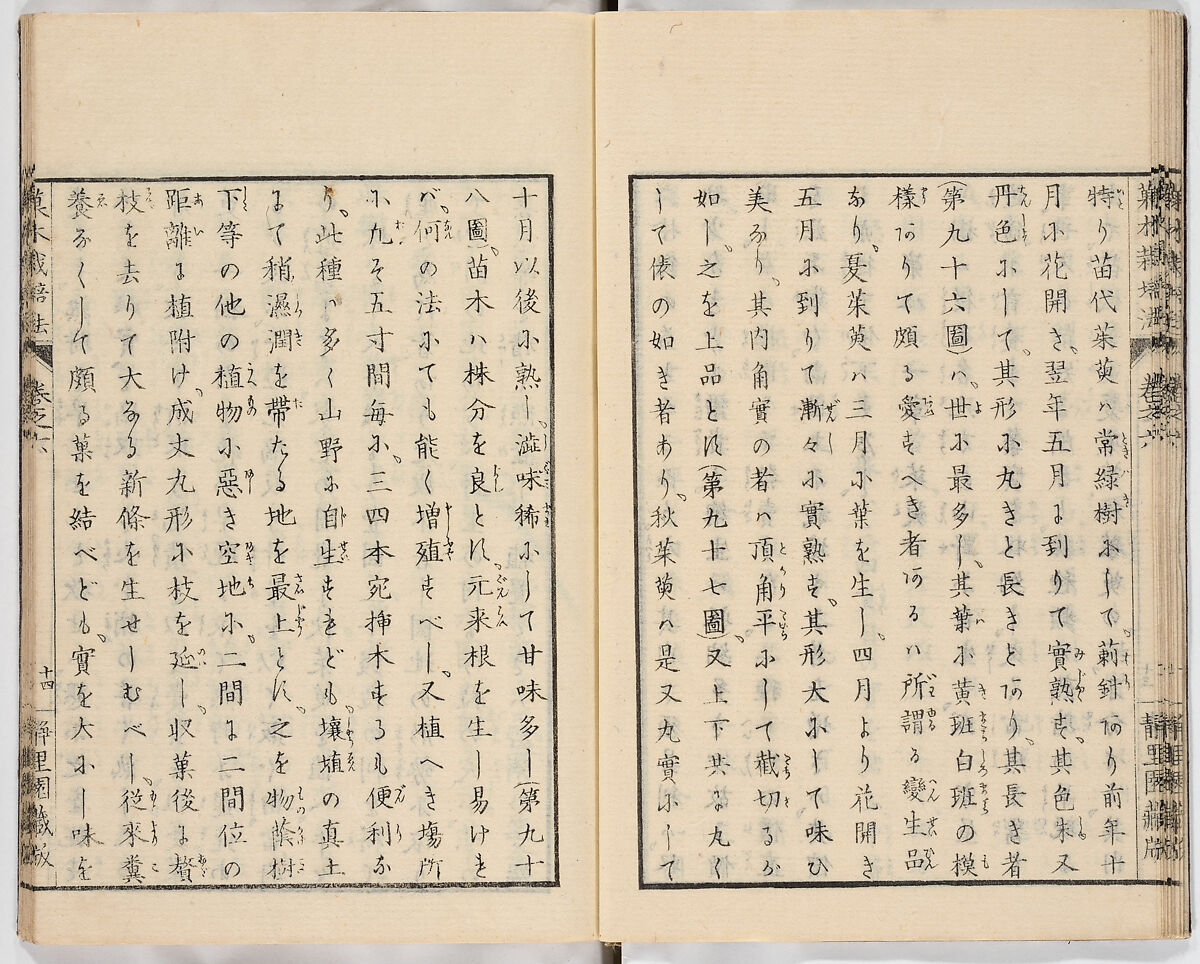 特り苗代茱萸ハ常緑樹にして、莿針あり前年十
月に花開き、翌年五月に到りて實熟す、其色朱又
丹色にして、其形に丸きと長きとあり、其長き者
(第九十六圖)ハ、世に最多し、其葉に黄斑白斑の模
樣ありて頗る愛すべき者あるハ所謂る變生品
なり、夏茱萸ハ三月に葉を生し、四月より花開き
五月に到りて漸々に實熟す、其形大にして味ひ
美なり、其内角實の者ハ頂角平にして截切るが
如し、之を上品とす(第九十七圖)、又上下共に丸く
して俵の如き者あり、秋茱萸ハ是又丸實にして
十月以後に熟し、澁味稀にして甘味多し(第九十
八圖)、苗木ハ株分を良とす、元来根を生し易けを
バ、何の法にても能く増殖すべし、又植へき塲所
に九そ五寸間毎に、三四本宛揷木するも便利な
り、此種ハ多く山野に自生すれども、壤埴の真土
にて稍濕潤を帶たる地を最上とす、之を物蔭樹
下等の他の植物に惡き空地に、二間に二間位の
距離に植附け、成丈丸形に枝を延し、収菓後に贅
枝を去りて大なる新條を生せしむべし、從來糞
養なくして頗る菓を結べども、實を大にし味を
菓木栽培法 卷之六
十四 静里園藏版